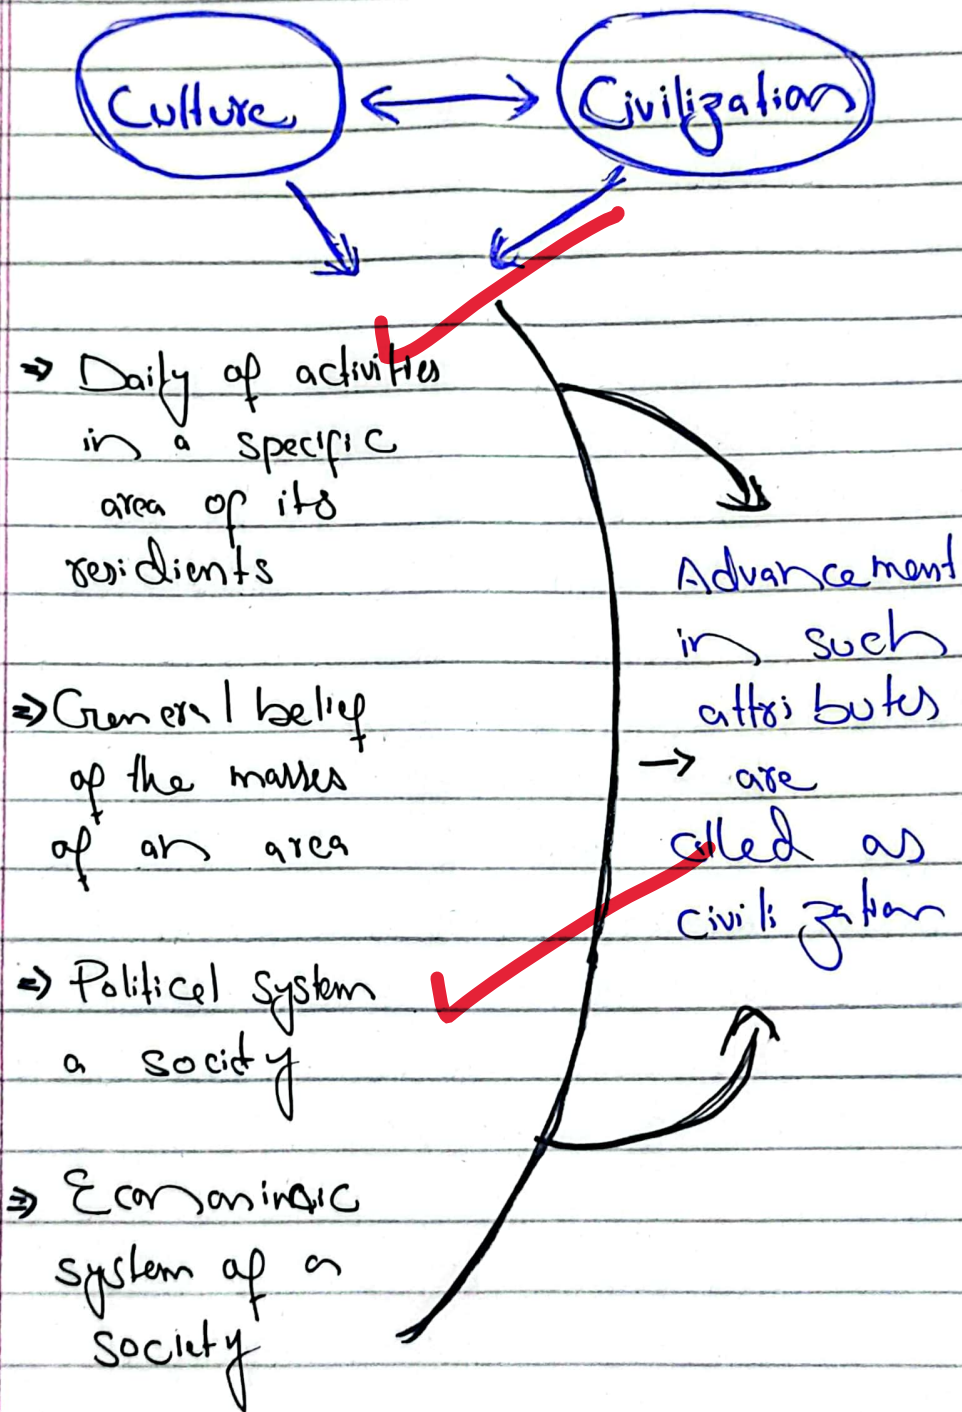 Culture ↔ Civilization
⇒ Daily of activities
in a specific
area of its
residients
⇒ General belief
of the masses
of an area
⇒ Political system
a society
⇒ Economic
system of a
society
Advancement
in such
attributes
→ are
called as
civilization